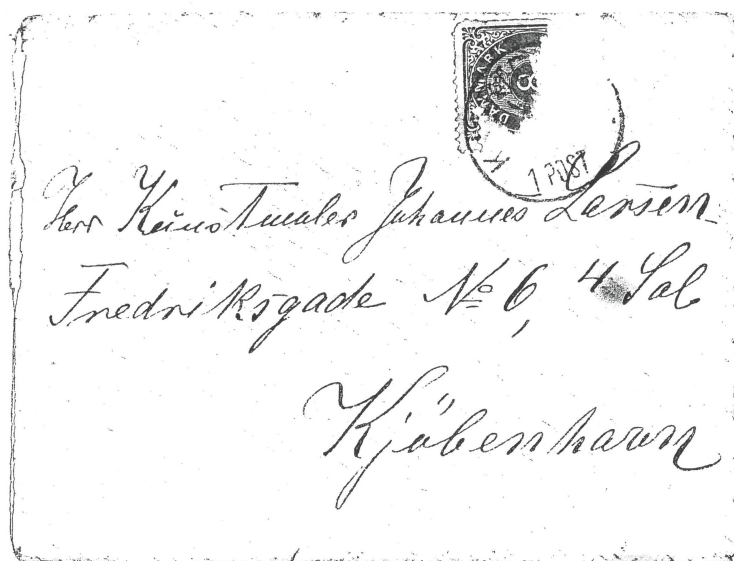 DANMARK
8
K
1 POST
Herr Kunstmaler Johannes Larsen
Fredriksgade No 6, 4 Sal
Kjöbenhavn